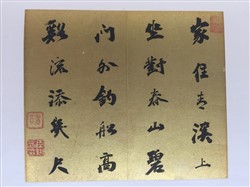 家住青溪上
坐對春山碧
門外釣船高
谿流添幾尺